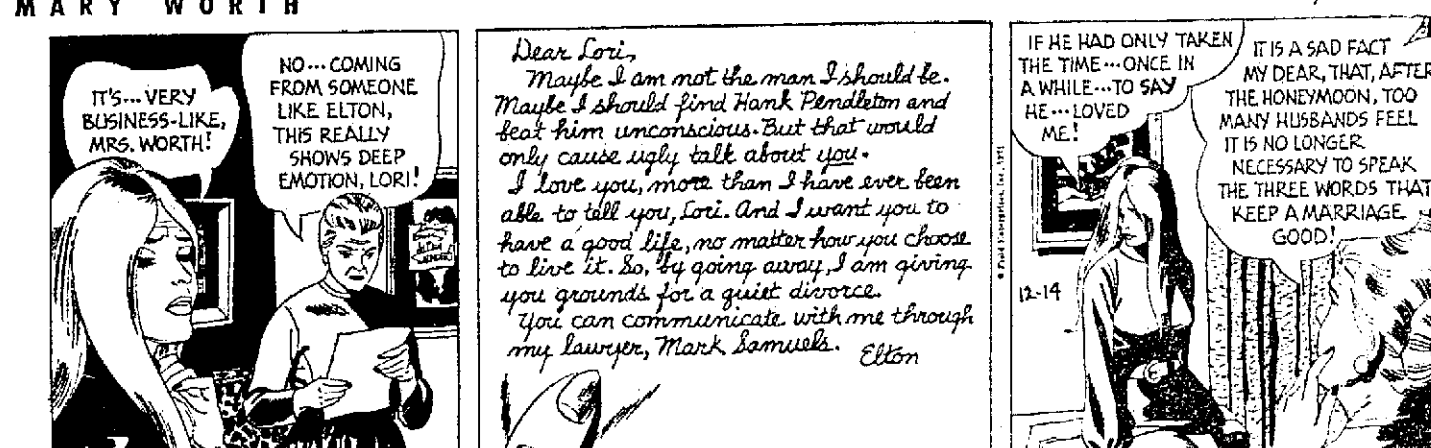 MARY WORTH
IT'S... VERY
BUSINESS-LIKE,
MRS. WORTH!
NO... COMING
FROM SOMEONE
LIKE ELTON,
THIS REALLY
SHOWS DEEP
EMOTION, LORI!
Dear Lori,
Maybe I am not the man I should be.
Maybe I should find Hank Pendleton and
beat him unconscious. But that would
only cause ugly talk about you.
I love you, more than I have ever been
able to tell you, Lori. And I want you to
have a good life, no matter how you choose
to live it. So, by going away, I am giving
you grounds for a quiet divorce.
You can communicate with me through
my lawyer, Mark Samuels.
Elton
© Field Enterprises, Inc., 1971
IF HE HAD ONLY TAKEN
THE TIME... ONCE IN
A WHILE... TO SAY
HE... LOVED
ME!
IT IS A SAD FACT
MY DEAR, THAT, AFTER
THE HONEYMOON, TOO
MANY HUSBANDS FEEL
IT IS NO LONGER
NECESSARY TO SPEAK
THE THREE WORDS THAT
KEEP A MARRIAGE
GOOD!
12-14